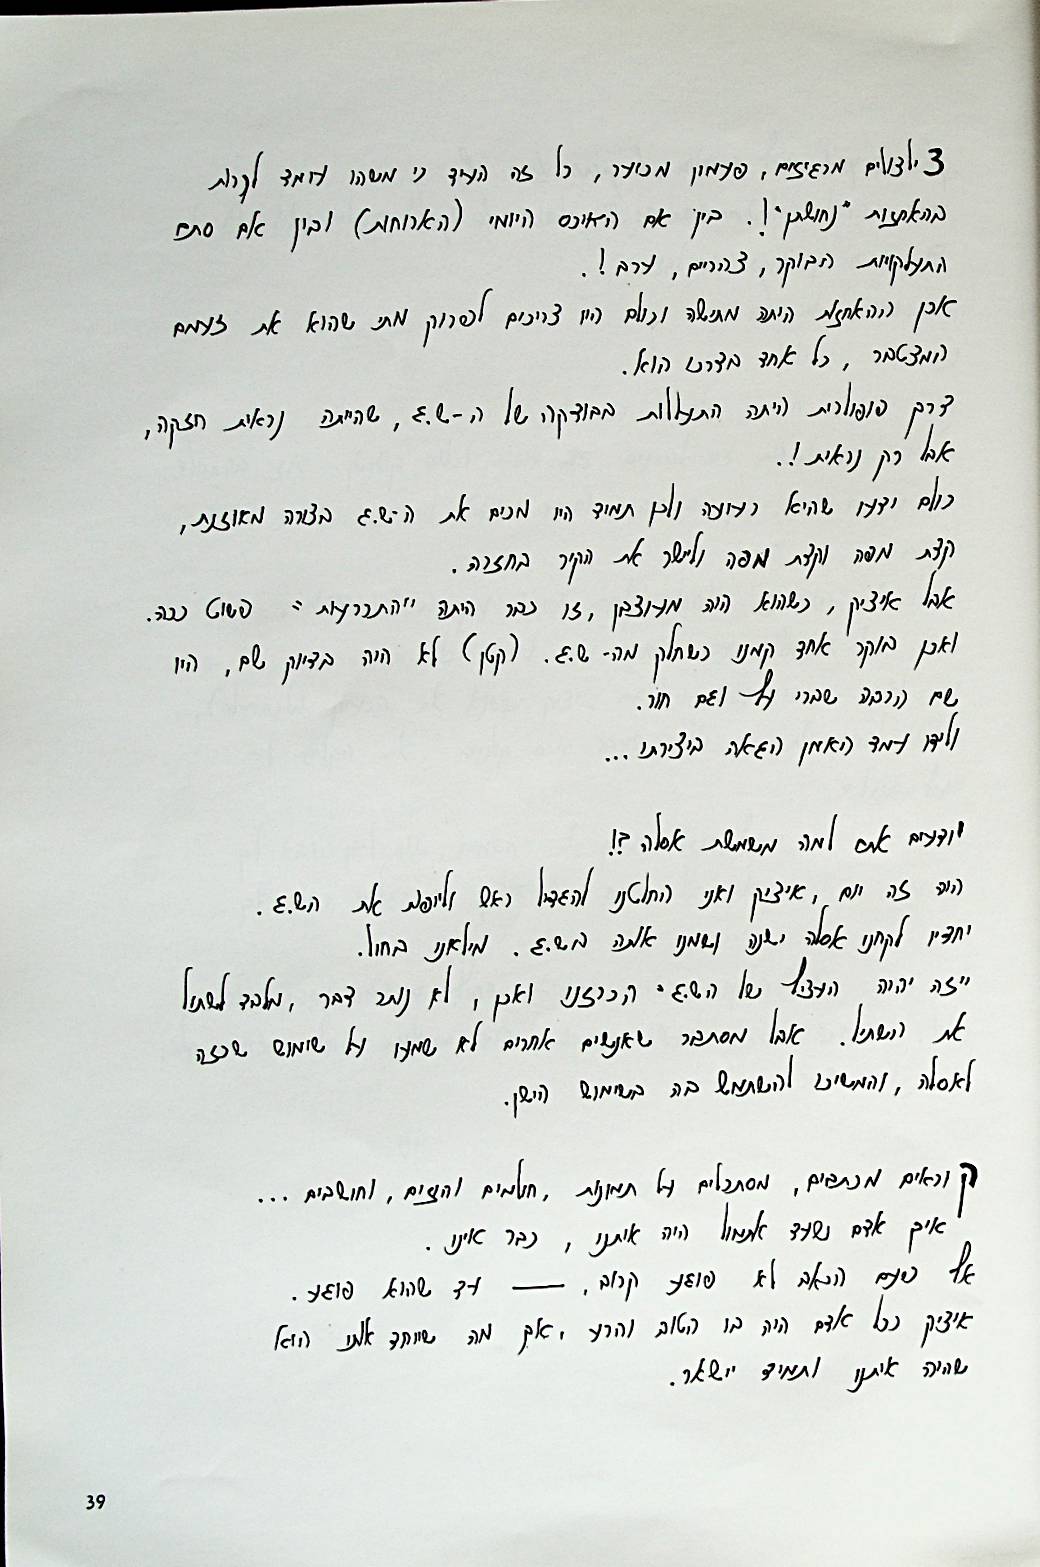 צילצולים מרגיזים, פעמון מכוער, כל זה העיד כי משהו עומד לקרות
בהאחזות "נחושתן"!. בין אם היאוכס היומי (הארוחות) ובין אם סתם
התעלקויות הבוקר, צהריים, ערב!.
אכן ההאחזות היתה מתישה וכולם היו צריכים לפרוק מתי שהוא את זעמם
המצטבר, כל אחד בדרכו הוא.
דרך פופולרית היתה התעללות בבודקה של ה-ש.ג, שהייתה נראית חזקה,
אבל רק נראית!.
כולם ידעו שהיא רעועה ולכן תמיד היו מכים את ה-ש.ג בצורה מאוזנת,
קצת מפה וקצת מפה וליישר את הקיר בחזרה.
אבל איציק, כשהוא היה מעוצבן, זו כבר היתה "התכרעות" פשוט ככה.
ואכן בוקר אחד קמנו כשחלק מה-ש.ג. (קטן) לא היה בדיוק שם, היו
שם הרבה שברי עץ וגם חור.
ולידו עמד האמן הגאה ביצירתו...
יודעים אתם למה משמשת אסלה?!
היה זה יום, איציק ואני החלטנו להגדיל ראש ולייפות את הש.ג.
יחדיו לקחנו אסלה ישנה ושמנו אותה בש.ג. מילאנו בחול.
"זה יהיה העציץ של הש.ג" הכרזנו ואכן, לא נותר דבר, מלבד לשתול
את השתיל. אבל מסתבר שאנשים אחרים לא שמעו על שימוש שכזה
לאסלה, והמשיכו להשתמש בה בשימוש הישן.
קוראים מכתבים, מסתכלים על תמונות, חולמים והוזים, וחושבים...
איך אדם שעד אתמול היה איתנו, כבר איננו.
אף פעם הכאב לא פוגע קרוב, — עד שהוא פוגע.
איציק ככל אדם היה בו הטוב והרע, אך מה שייחד אותו הוא
שהיה איתנו ותמיד יישאר.
39